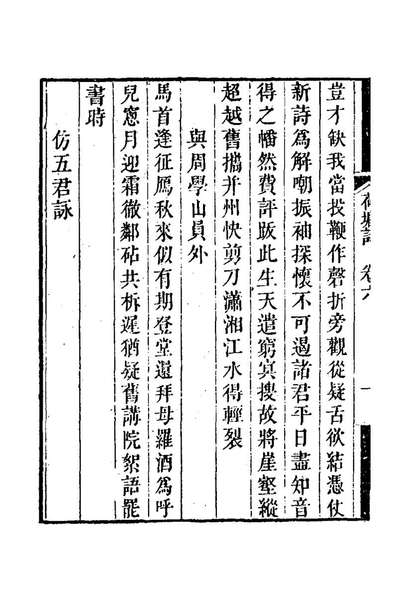 豈才缺我當投鞭作磬折旁觀從疑舌欲結憑仗
新詩為解嘲振袖探懷不可遏諸君平日盡知音
得之幡然費評跋此生天遣窮冥搜故將崖壑縱
超越舊攜并州快剪刀瀟湘江水得輕裂
與周學山員外
馬首逢征鴈秋來似有期登堂還拜母羅酒為呼
兒窻月迎霜徹鄰砧共柝遲猶疑舊講院絮語罷
書時
仿五君詠
卷六
一